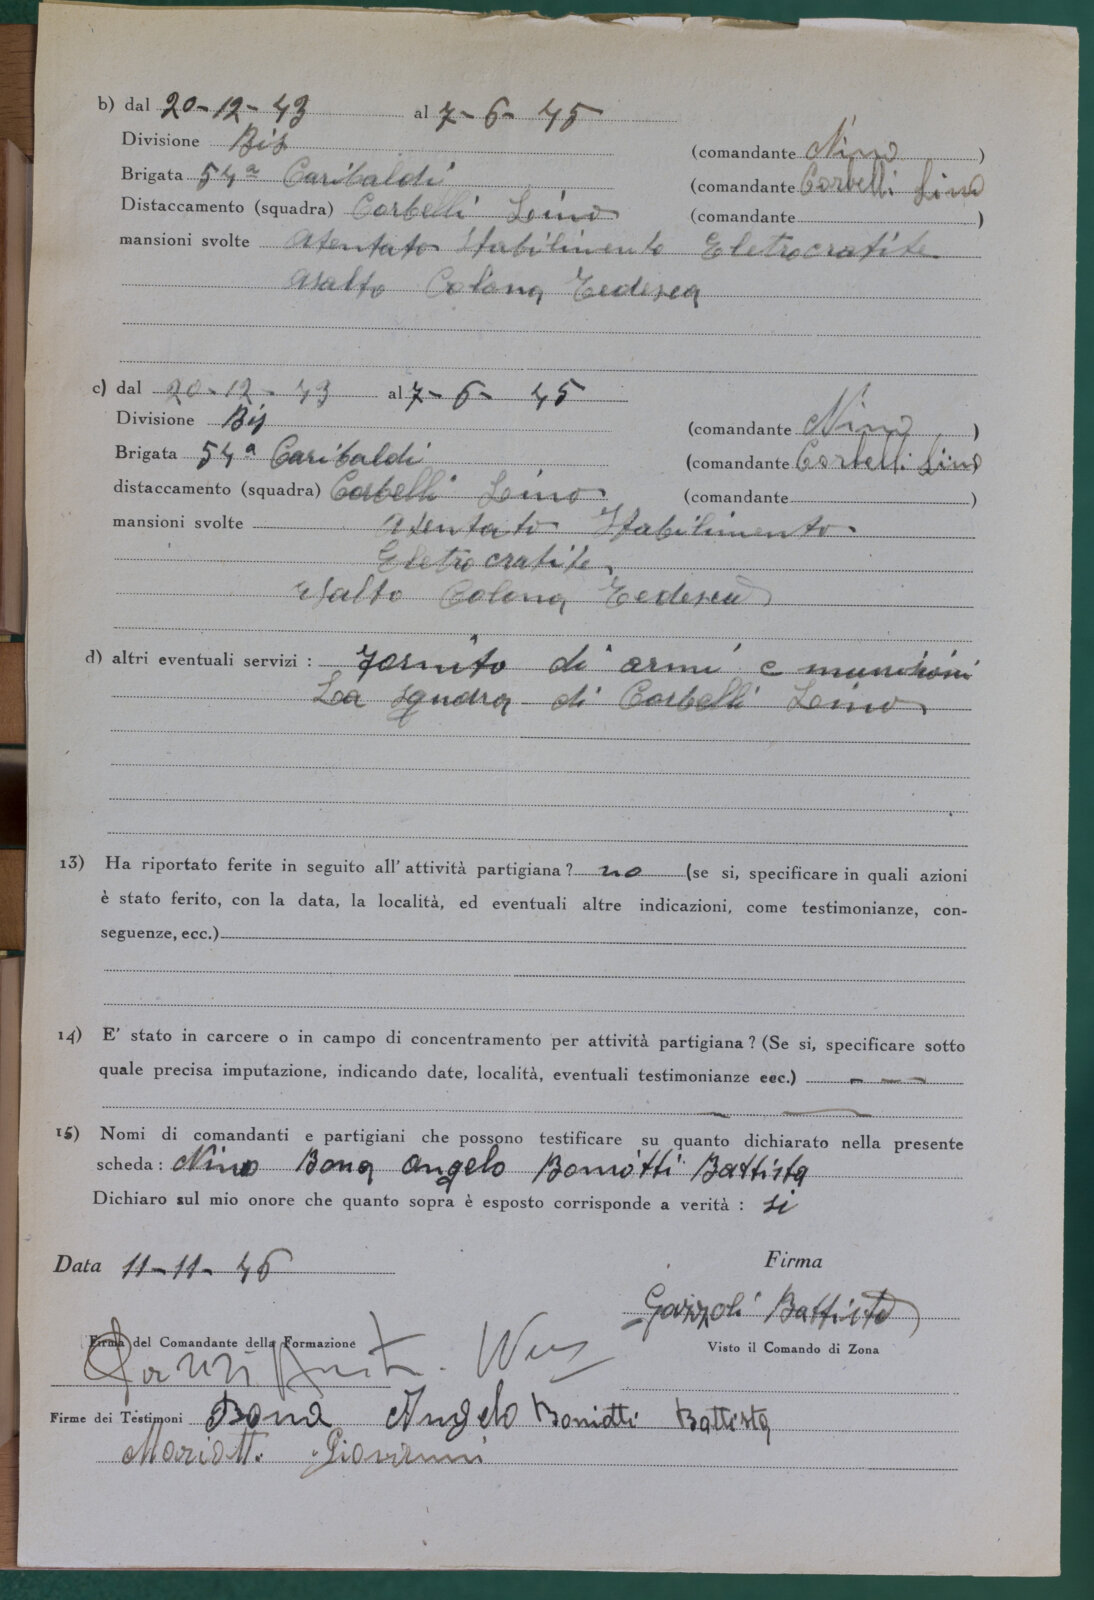 b) dal 20-12-43 al 7-6-45
Divisione Bis (comandante Nino )
Brigata 54ª Garibaldi (comandante Corbelli Lino
Distaccamento (squadra) Corbelli Leino (comandante )
mansioni svolte Atentato Stabilimento Eletrocratite
Asalto Colona Tedesca
c) dal 20-12-43 al 7-6-45
Divisione Bis (comandante Nino )
Brigata 54ª Garibaldi (comandante Corbelli Lino
distaccamento (squadra) Corbelli Leino (comandante )
mansioni svolte Atentato Stabilimento
Eletrocratite
Asalto Colona Tedesca
d) altri eventuali servizi : Fornito di armi e munizioni
La squdra di Corbelli Leino
13) Ha riportato ferite in seguito all' attività partigiana ? no (se si, specificare in quali azioni
è stato ferito, con la data, la località, ed eventuali altre indicazioni, come testimonianze, con-
seguenze, ecc.)
14) E' stato in carcere o in campo di concentramento per attività partigiana ? (Se si, specificare sotto
quale precisa imputazione, indicando date, località, eventuali testimonianze ecc.) - - -
15) Nomi di comandanti e partigiani che possono testificare su quanto dichiarato nella presente
scheda : Nino Bona Angelo Bomotti Battista
Dichiaro sul mio onore che quanto sopra è esposto corrisponde a verità : si
Data 11-11-46 Firma
Gazzoli Battista
Firma del Comandante della Formazione Visto il Comando di Zona
Firme dei Testimoni Bona Angelo Boniotti Battista
Mariotti Giovanni